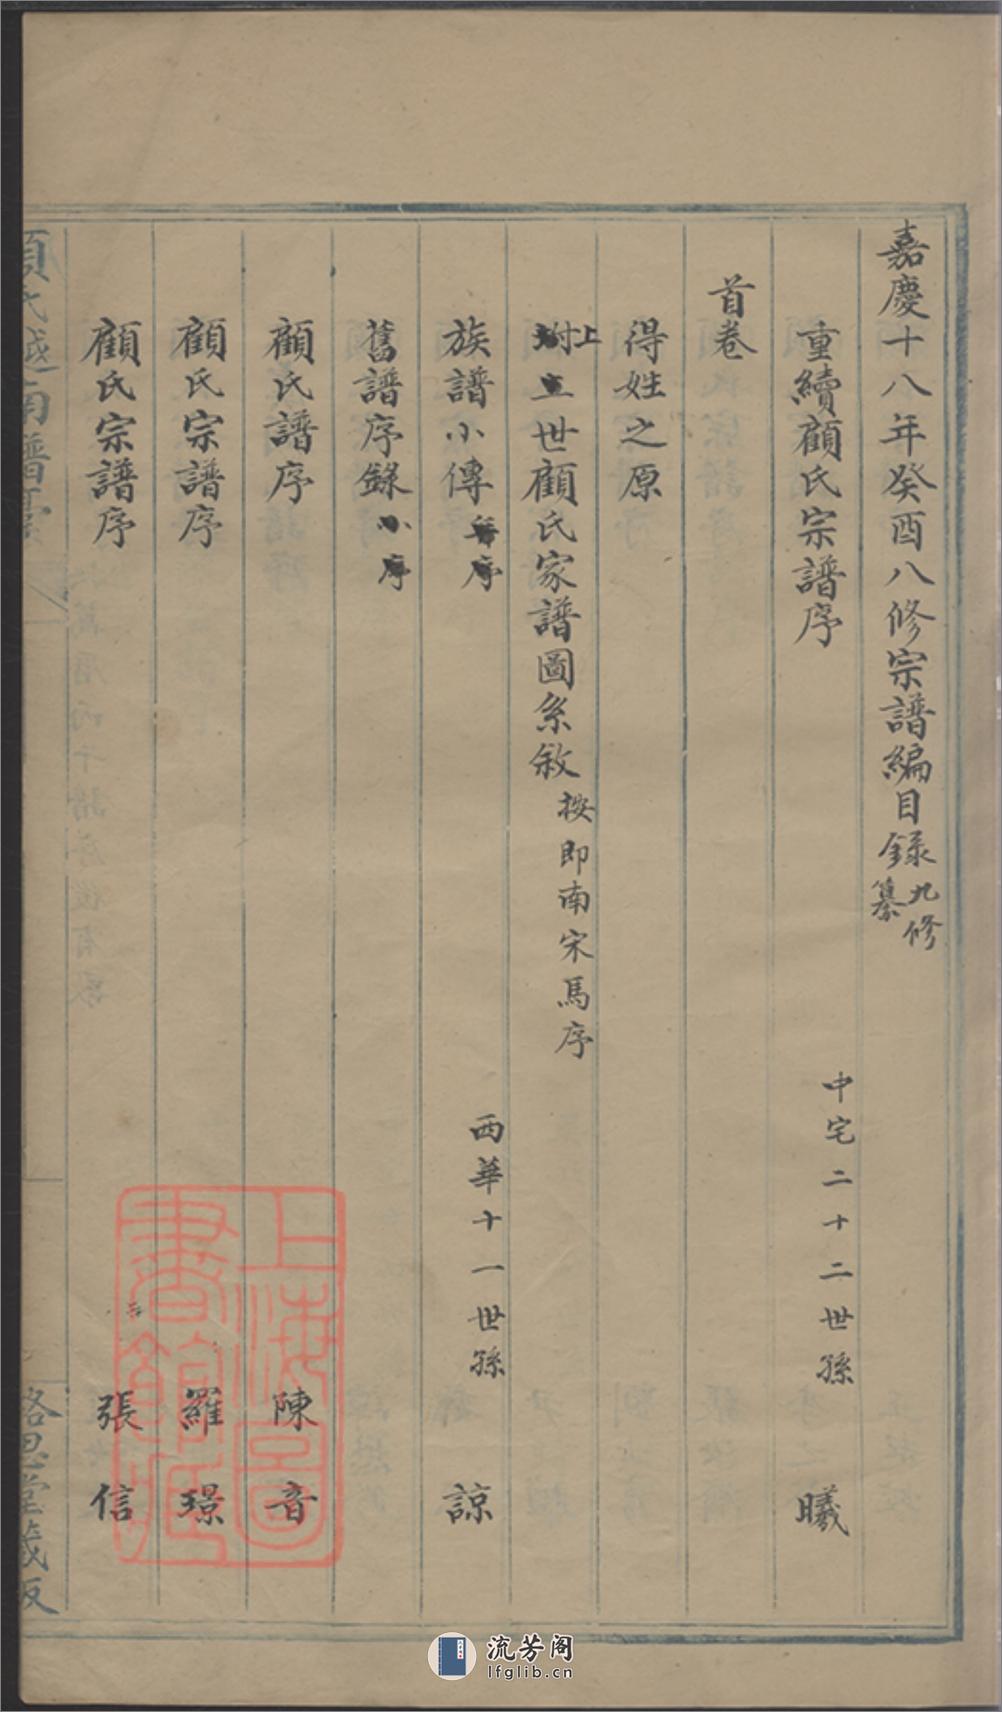 嘉慶十八年癸酉八修宗譜編目錄 九修纂
重續顧氏宗譜序 中宅二十二世孫 曦
首卷
得姓之原
上附 世顧氏家譜圖系敘 按即南宋馬序
族譜小傳 序 西華十一世孫 諒
舊譜序錄 小序
顧氏譜序 陳音
顧氏宗譜序 羅璟
顧氏宗譜序 張信
上海圖書館藏
流芳阁
lfglib.cn